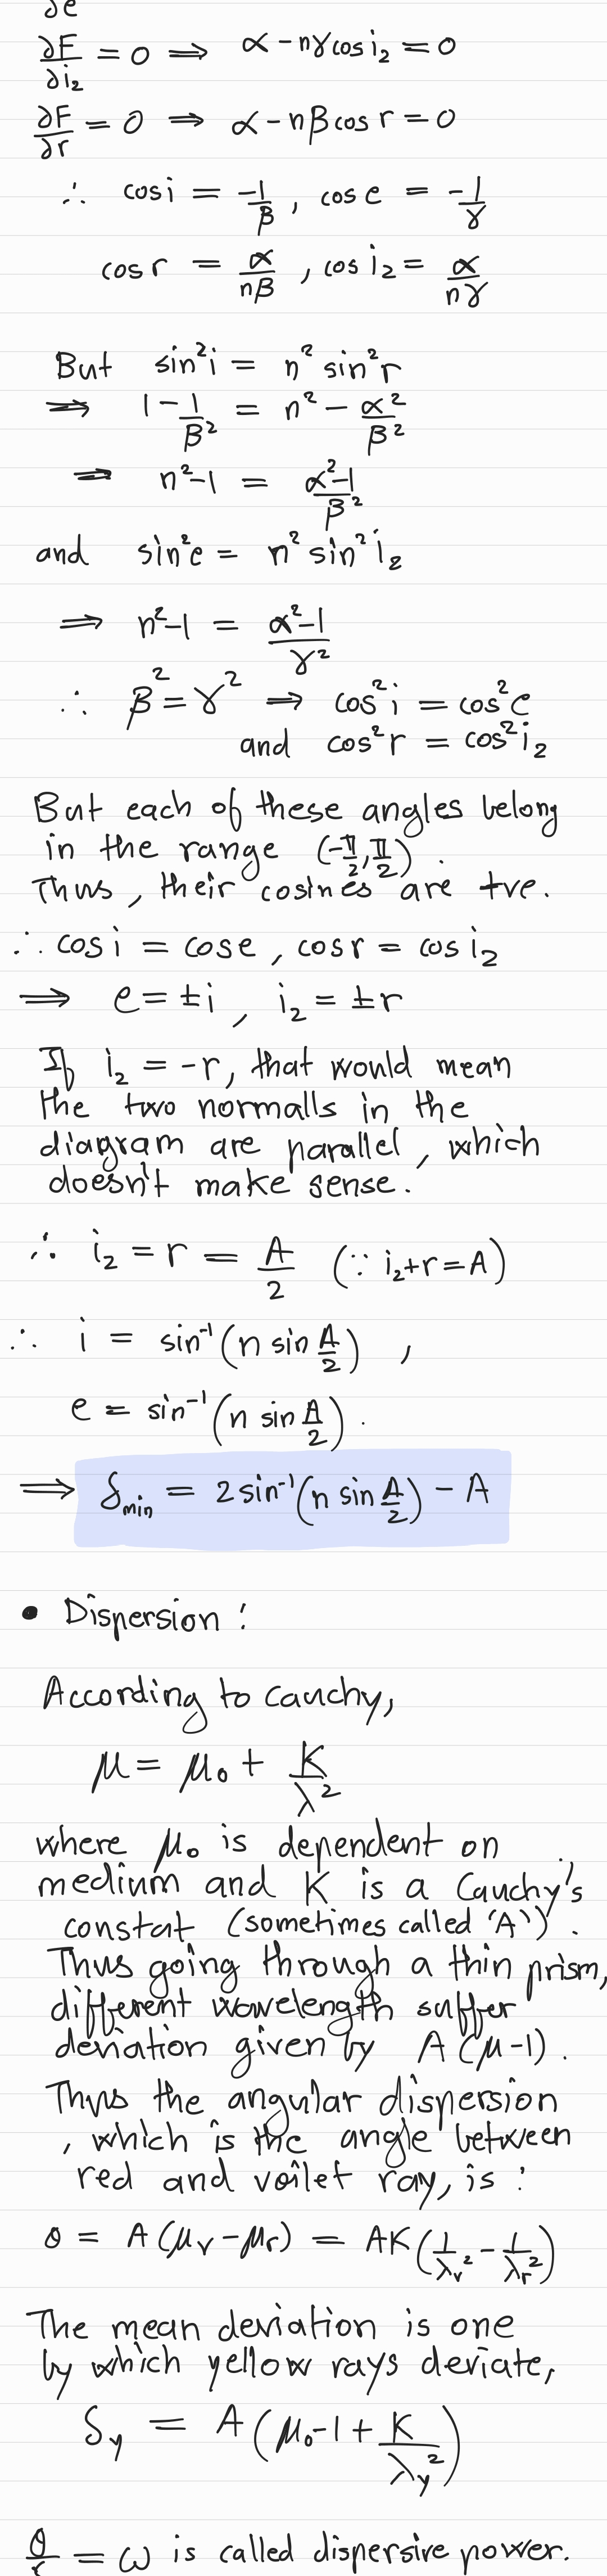 ∂e
∂F/∂i₂ = 0 ⟹ α - nγcos i₂ = 0
∂F/∂r = 0 ⟹ α - nβcos r = 0
∴ cos i = -1/β , cos e = -1/γ
cos r = α/nβ , cos i₂ = α/nγ
But sin²i = n² sin²r
⟹ 1 - 1/β² = n² - α²/β²
⟹ n²-1 = (α²-1)/β²
and sin²e = n² sin²i₂
⟹ n²-1 = (α²-1)/γ²
∴ β² = γ² ⟹ cos²i = cos²e
and cos²r = cos²i₂
But each of these angles belong
in the range (-π/2, π/2).
Thus, their cosines are +ve.
∴ cos i = cos e , cos r = cos i₂
⟹ e = ±i , i₂ = ±r
If i₂ = -r, that would mean
the two normalls in the
diagram are parallel, which
doesn't make sense.
∴ i₂ = r = A/2 (∵ i₂+r = A)
∴ i = sin⁻¹(n sin A/2) ,
e = sin⁻¹(n sin A/2) .
⟹ δmin = 2sin⁻¹(n sin A/2) - A
• Dispersion :
According to Cauchy,
μ = μ₀ + K/λ²
where μ₀ is dependent on
medium and K is a Cauchy's
constat (sometimes called 'A') .
Thus going through a thin prism,
different wavelength suffer
deviation given by A(μ-1) .
Thus the angular dispersion
, which is the angle between
red and voilet ray, is :
θ = A(μv - μr) = AK(1/λv² - 1/λr²)
The mean deviation is one
by which yellow rays deviate,
δy = A(μ₀-1 + K/λy²)
θ/ = ω is called dispersive power.